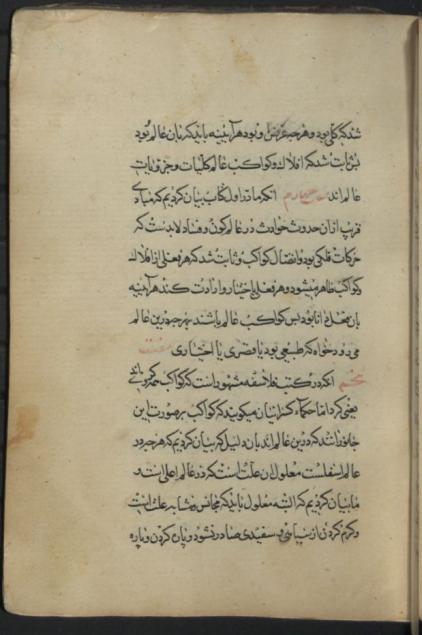 شد که کلی بود و هر چه غرض او بود هر آینه باید که بان عالم بود
نیز ثابت شد که افلاک و کواکب عالم کلیات و جزویات
عالم‌اند چهارم آنکه ما در اول کتاب بیان کردیم که مبادی
قریب از آن حدوث حوادث در عالم کون و فساد لابدست که
حرکات فلکی بود و اتصال کواکب و ثابت شد که هر فعلی از افلاک
و کواکب ظاهر میشود و هر فعل باختیار و ارادت کنند هر آینه
بان فعل دانا بود پس کواکب عالم باشند بهرچه درین عالم
می‌رود خواه که طبیعی بود یا قسری یا اختیاری
پنجم آنکه در کتب فلاسفه مشهورست که کواکب
یعنی کرد اما حکماء کلدانیان میگویند که کواکب بر صورت این
جانوران‌اند که درین عالم‌اند بان دلیل که بیان کردیم که هر چه در
عالم اسفلست معلول ان علت است که در عالم اعلی است و
ما بیان کردیم که البته معلول باید که مجانس و مشابه علت است
و گرم کردن از سیاهی و سفیدی صادر نشود و بان کردن و پاره